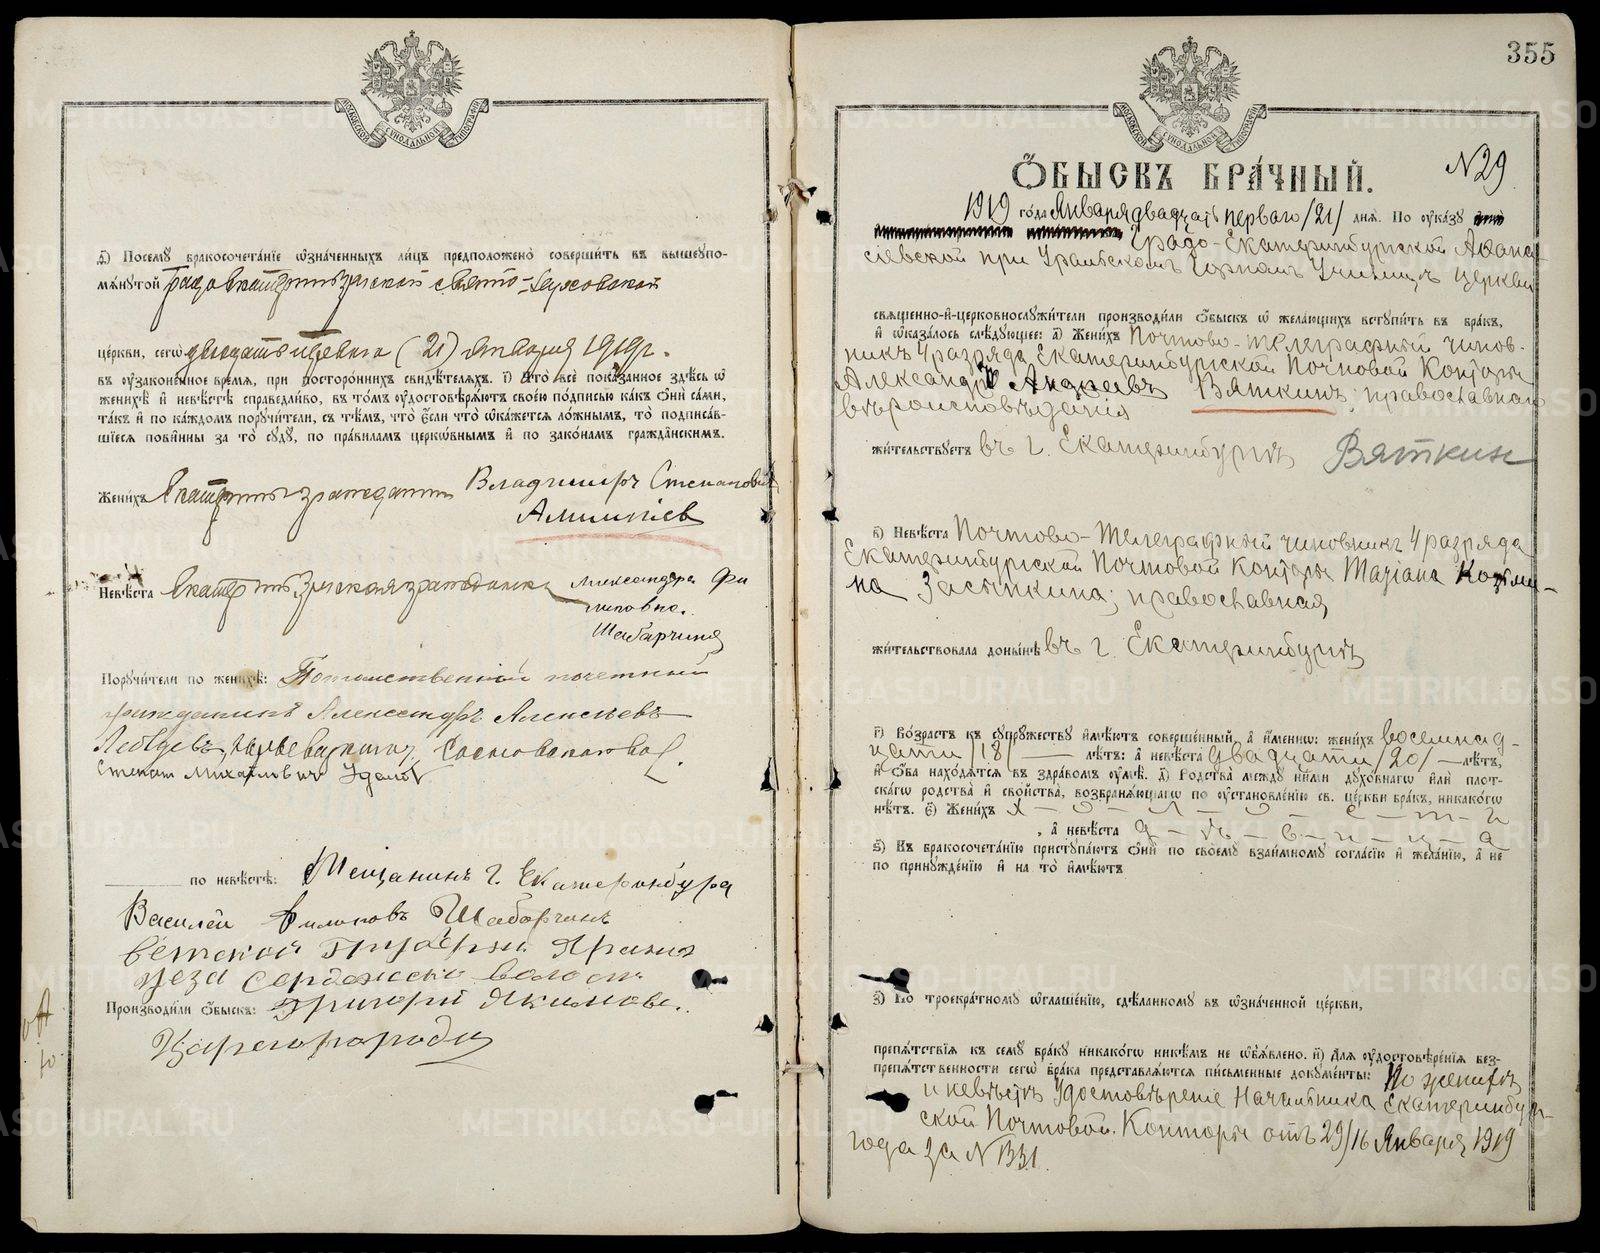 МОСКОВСКОЙ СѴНОДАЛЬНОЙ ТИПОГРАФІИ
ѳ҃) Посемꙋ бракосочетаніе ѡзначенныхъ лицъ предположено совершить въ вышеупо-
мянутой Градо Екатеринбургской Свято-Духовской
церкви, сегѡ двадцать перваго (21) Января 1919 г.
въ ᲂузаконенное время, при постороннихъ свидѣтеляхъ. і҃) Что всё показанное здѣсь ѡ
женихѣ и невѣстѣ справедливо, въ томъ ᲂудостовѣряютъ своею подписью какъ ѻни сами,
такъ и по каждомъ поручители, съ тѣмъ, что если что ѡкажется ложнымъ, то подписав-
шіеся повинны за то судꙋ, по правиламъ церковнымъ и по законамъ гражданскимъ.
Женихъ Екатеринб гражданин Владимиръ Степановичъ
Алимпіев
Невѣста Екатеринбургская гражданка Александра Фи
липовна
Шабарчина
Поручители по женихѣ: Потомственный почетный
гражданинъ Александръ Алексѣевъ
Лебедевъ
Степан Михайловичъ Удалов
по невѣстѣ: Мещанинъ г. Екатеринбурга
Василей Филиповъ Шабарчинъ
Вятской Губерни Яранск
уезд волости
Производили ѻбыскъ: Григорій Якимовъ
Царегородц
355
МОСКОВСКОЙ СѴНОДАЛЬНОЙ ТИПОГРАФІИ
ѺБЫСКЪ БРАЧНЫЙ.
N 29
1919 года Января двадцать перваго /21/ дня. По ᲂуказꙋ
Градо-Екатеринбургской Аѳана-
сіевской при Уральскомъ Горномъ Училищѣ церкви
священно-и-церковнослужители производили ѻбыскъ ѡ желающихъ вступить въ бракъ,
и ѡказалось слѣдующее: а҃) Женихъ Почтово-телеграфный чинов-
никъ 4 разряда Екатеринбургской Почтовой Конторы
Александръ Андреевъ Вяткинъ, православнаго
вѣроисповѣданія
жительствуетъ въ г. Екатеринбургѣ Вяткин
в҃) Невѣста Почтово-Телеграфный чиновникъ 4 разряда
Екатеринбургской Почтовой Конторы Татіана Козьми-
на Засыпкина; православная
жительствовала донынѣ въ г. Екатеринбургѣ
г҃) Возрастъ къ супружествꙋ имѣютъ совершенный, а именно: женихъ восемнад-
цати /18/ — лѣтъ: а невѣста двадцати /20/ — лѣтъ,
и ѻба находятся въ здравомъ ᲂумѣ. д҃) Родства междꙋ ними духовнагѡ или плот-
скагѡ родства и свойства, возбраняющагѡ по ᲂустановленію св. церкви бракъ, никакогѡ
нѣтъ. е҃) Женихъ х — о — л — о — с — т — ъ
, а невѣста д — ѣ — в — и — ц — а
ѕ҃) Къ бракосочетанію приступаютъ ѻни по своемꙋ взаимномꙋ согласію и желанію, а не
по принужденію и на то имѣютъ
з҃) По троекратномꙋ ѡглашенію, сдѣланномꙋ въ ѡзначенной церкви,
препятствія къ семꙋ бракꙋ никакогѡ никѣмъ не ѡбъявлено. и҃) Для ᲂудостовѣренія без-
препятственности сегѡ брака представляются письменные документы: По женихѣ
и невѣстѣ Удостовѣреніе Начальника Екатеринбург-
ской Почтовой Конторы отъ 29/16 Января 1919
года за N 1331
METRIKI.GASO-URAL.RU